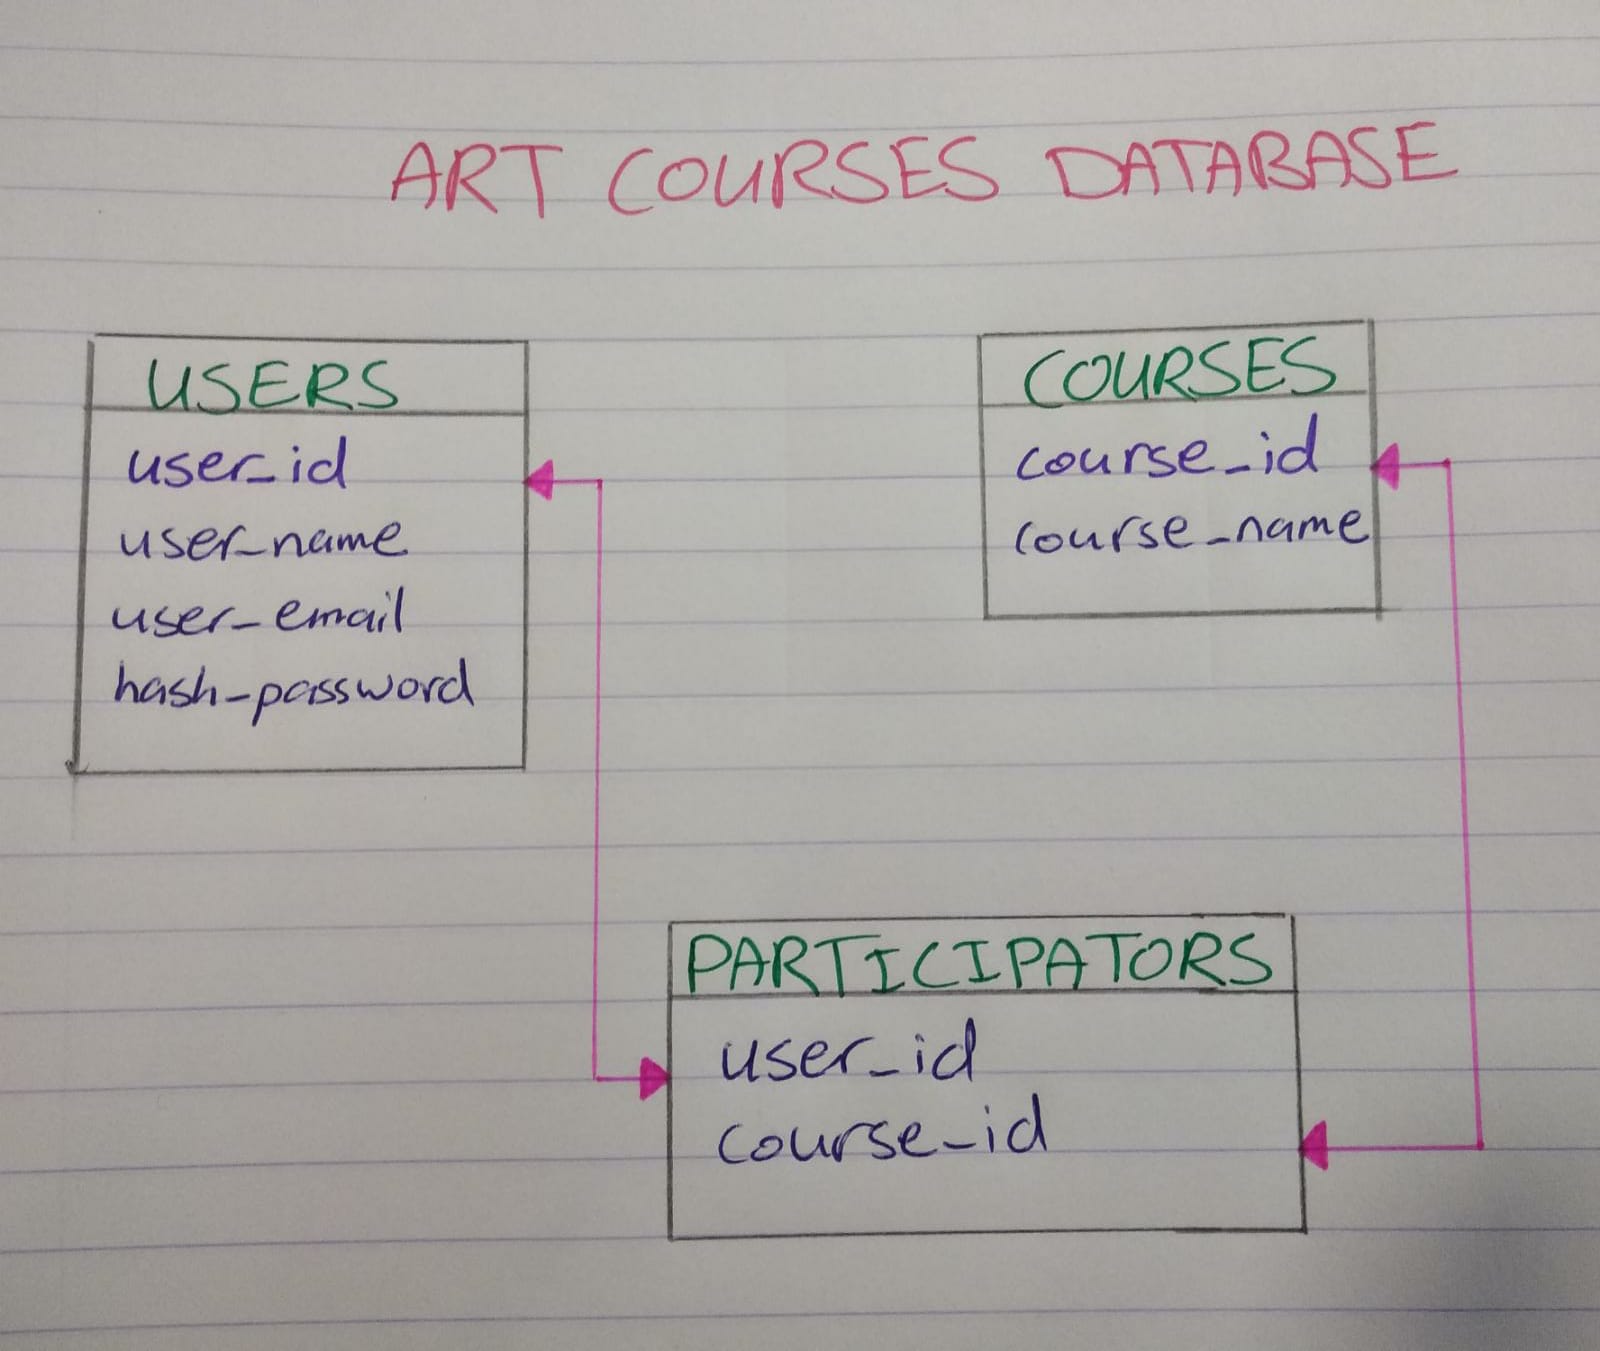 ART COURSES DATABASE
USERS
user_id
user_name
user_email
hash_password
COURSES
course_id
course_name
PARTICIPATORS
user_id
course_id